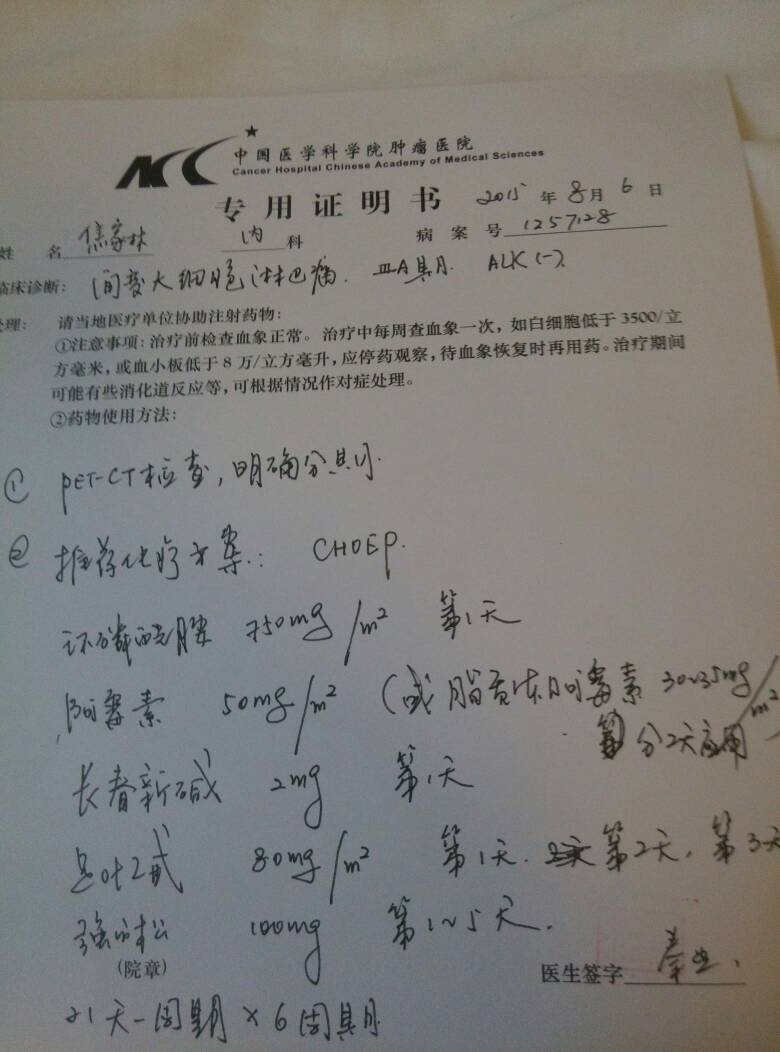 NCC 中国医学科学院肿瘤医院
Cancer Hospital Chinese Academy of Medical Sciences
专用证明书 2015 年 8 月 6 日
姓 名 焦家林 内 科 病 案 号 1257128
临床诊断: 间变大细胞淋巴瘤. ⅢA期. ALK(-).
处理: 请当地医疗单位协助注射药物:
①注意事项: 治疗前检查血象正常。治疗中每周查血象一次, 如白细胞低于 3500/立
方毫米, 或血小板低于 8 万/立方毫升, 应停药观察, 待血象恢复时再用药。治疗期间
可能有些消化道反应等, 可根据情况作对症处理。
②药物使用方法:
① PET-CT检查, 明确分期.
② 推荐化疗方案: CHOEP.
环磷酰胺 750mg/m² 第1天
阿霉素 50mg/m² (或脂质体阿霉素 30~35mg/m²
分2天应用
长春新碱 2mg 第1天
足叶乙甙 80mg/m² 第1天. 第2天, 第3天
强的松 100mg 第1~5天.
(院章) 医生签字
21天一周期 × 6周期